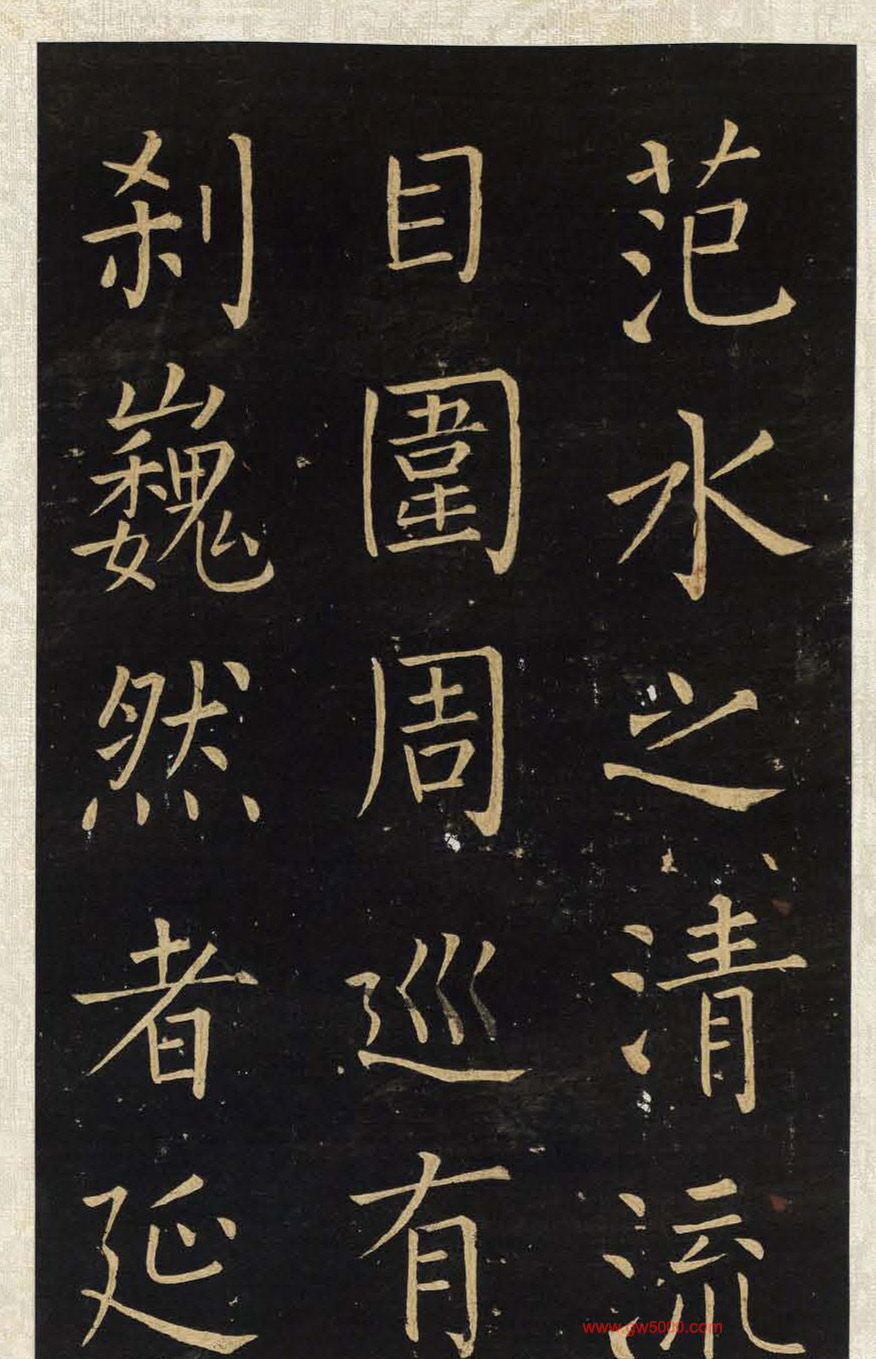 范水之清流
目圍周巡有
刹巍然者延
www.gw5000.com